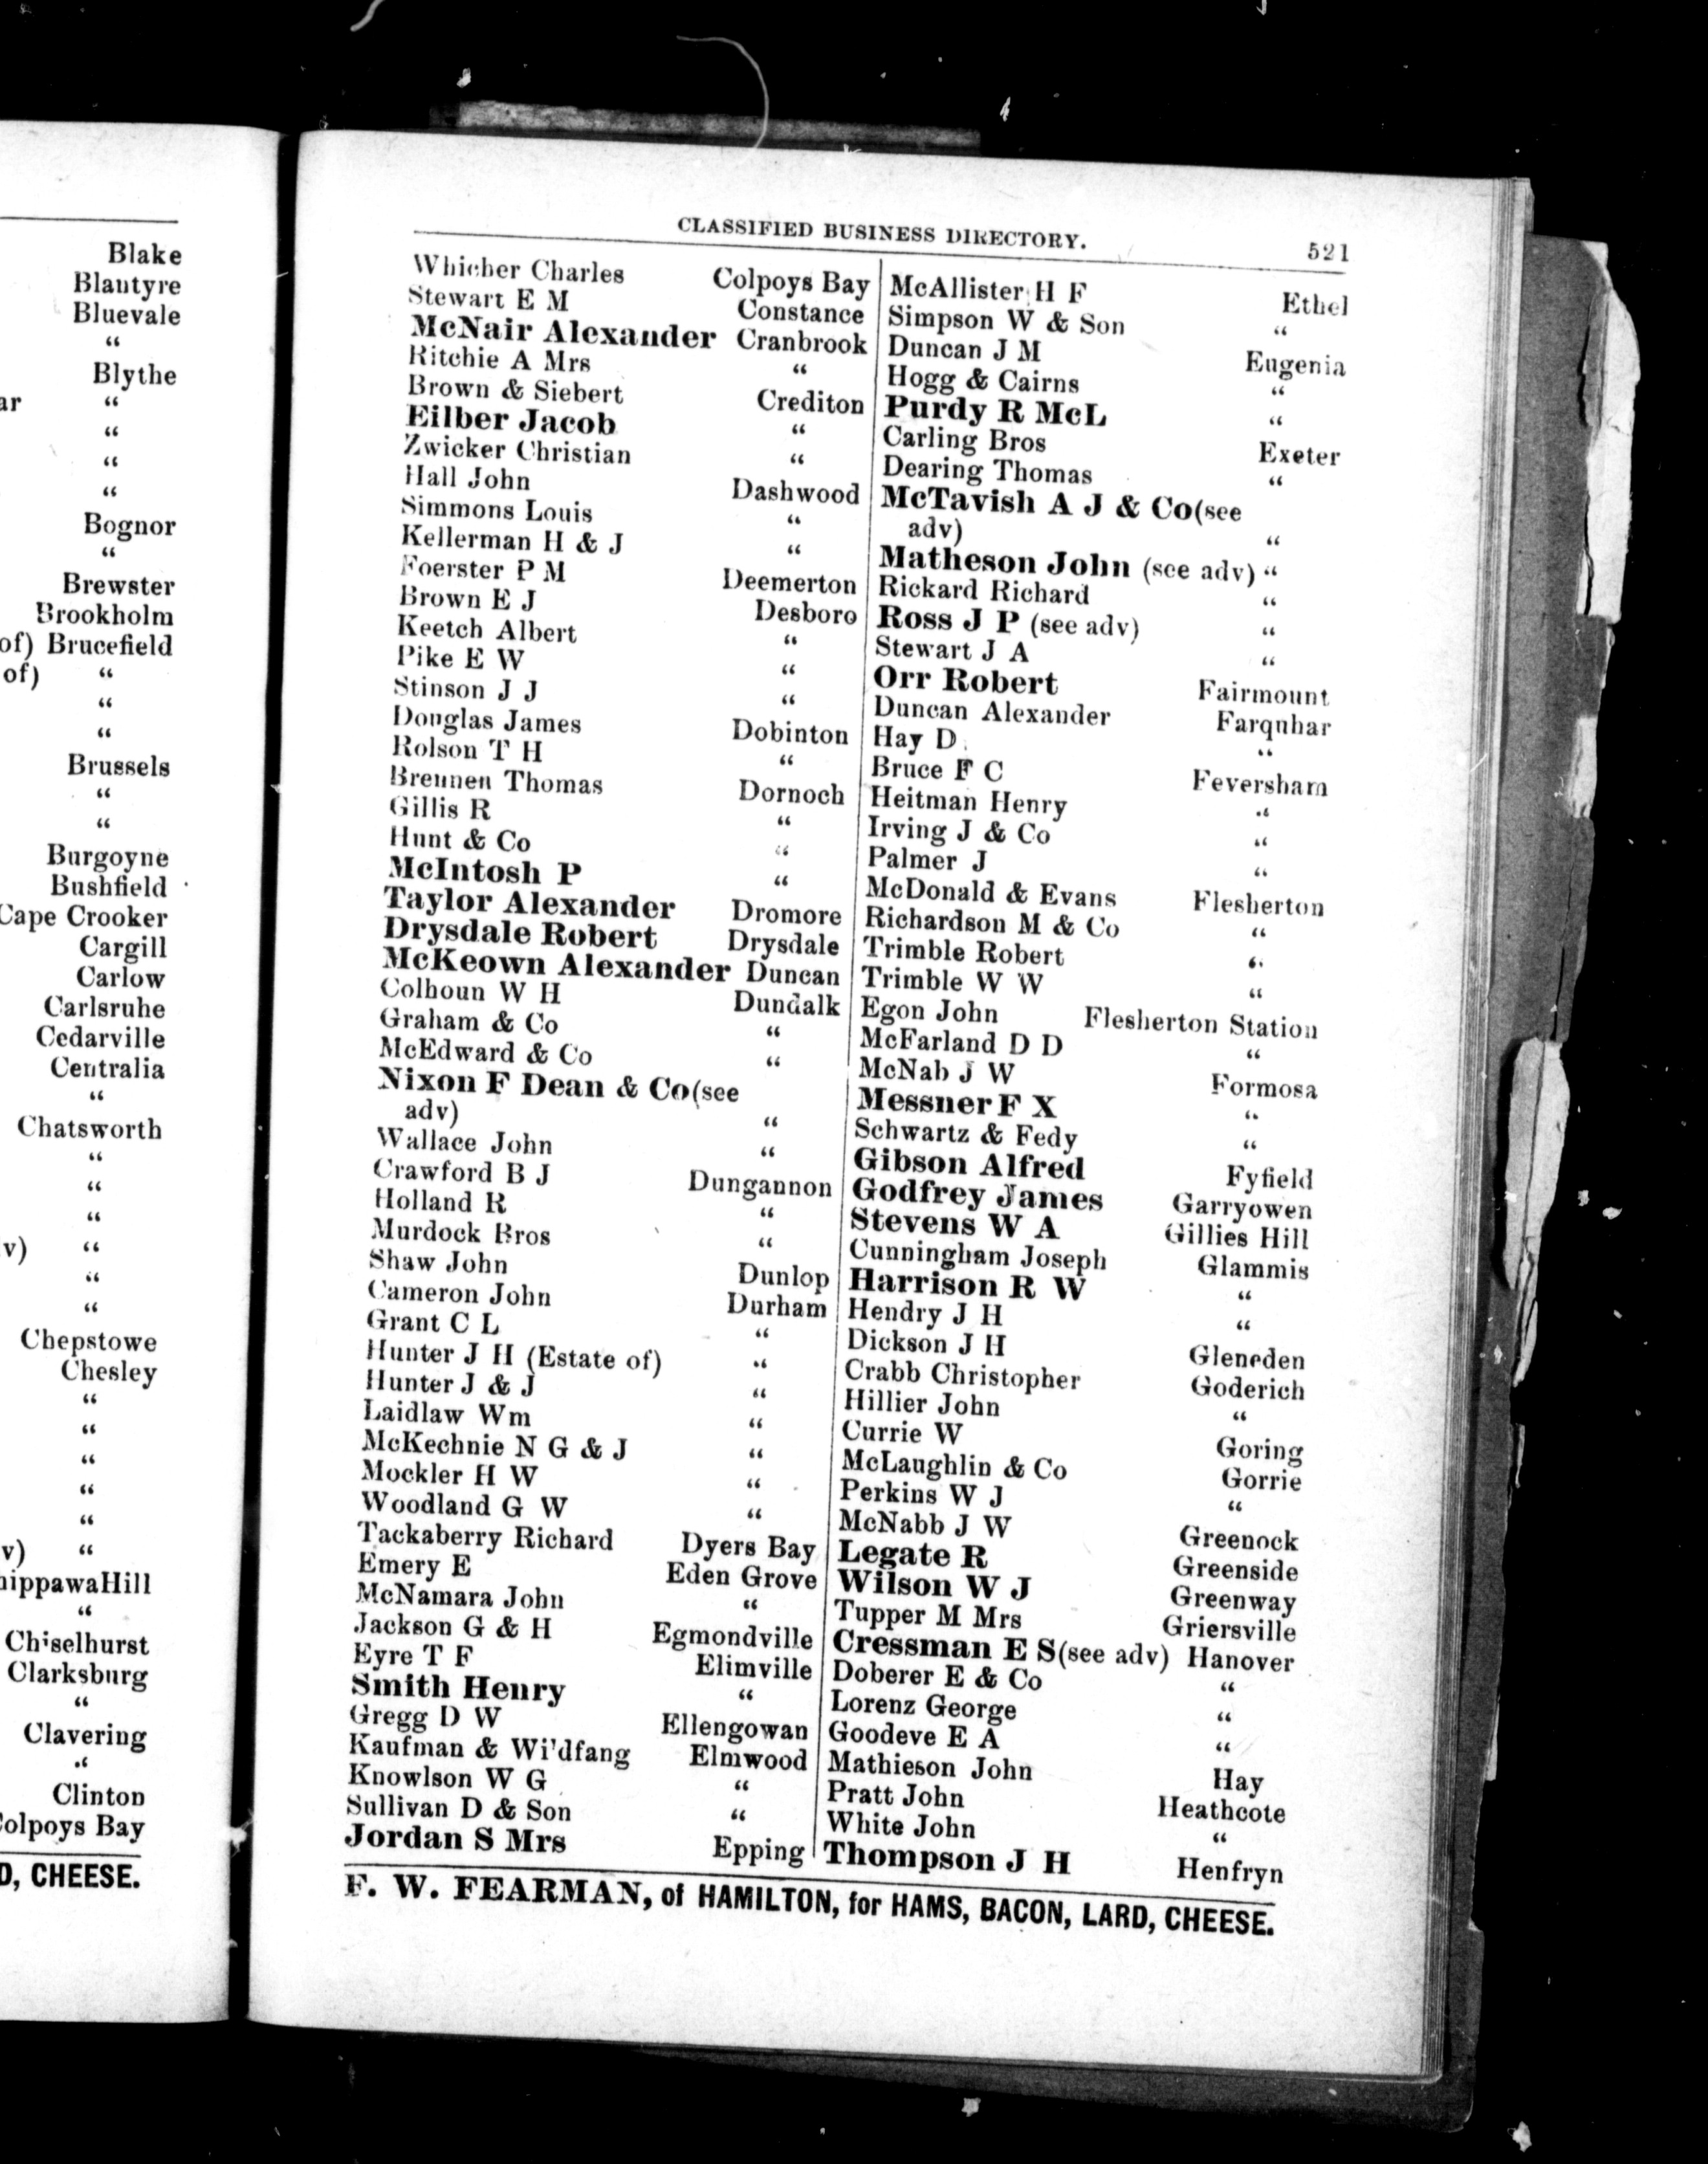 Blake
Blantyre
Bluevale
“
Blythe
ar “
“
“
“
Bognor
“
Brewster
Brookholm
of) Brucefield
of) “
“
“
Brussels
“
“
Burgoyne
Bushfield
Cape Crooker
Cargill
Carlow
Carlsruhe
Cedarville
Centralia
“
Chatsworth
“
“
“
v) “
“
“
Chepstowe
Chesley
“
“
“
“
“
v) “
hippawaHill
“
Chiselhurst
Clarksburg
“
Clavering
“
Clinton
Colpoys Bay
D, CHEESE.
CLASSIFIED BUSINESS DIRECTORY. 521
Whicher Charles Colpoys Bay
Stewart E M Constance
McNair Alexander Cranbrook
Ritchie A Mrs “
Brown & Siebert Crediton
Eilber Jacob “
Zwicker Christian “
Hall John Dashwood
Simmons Louis “
Kellerman H & J “
Foerster P M Deemerton
Brown E J Desboro
Keetch Albert “
Pike E W “
Stinson J J “
Douglas James Dobinton
Rolson T H “
Brennen Thomas Dornoch
Gillis R “
Hunt & Co “
McIntosh P “
Taylor Alexander Dromore
Drysdale Robert Drysdale
McKeown Alexander Duncan
Colhoun W H Dundalk
Graham & Co “
McEdward & Co “
Nixon F Dean & Co(see
adv) “
Wallace John “
Crawford B J Dungannon
Holland R “
Murdock Bros “
Shaw John Dunlop
Cameron John Durham
Grant C L “
Hunter J H (Estate of) “
Hunter J & J “
Laidlaw Wm “
McKechnie N G & J “
Mockler H W “
Woodland G W “
Tackaberry Richard Dyers Bay
Emery E Eden Grove
McNamara John “
Jackson G & H Egmondville
Eyre T F Elimville
Smith Henry “
Gregg D W Ellengowan
Kaufman & Wi'dfang Elmwood
Knowlson W G “
Sullivan D & Son “
Jordan S Mrs Epping
McAllister H F Ethel
Simpson W & Son “
Duncan J M Eugenia
Hogg & Cairns “
Purdy R McL “
Carling Bros Exeter
Dearing Thomas “
McTavish A J & Co(see
adv) “
Matheson John (see adv) “
Rickard Richard “
Ross J P (see adv) “
Stewart J A “
Orr Robert Fairmount
Duncan Alexander Farquhar
Hay D “
Bruce F C Feversham
Heitman Henry “
Irving J & Co “
Palmer J “
McDonald & Evans Flesherton
Richardson M & Co “
Trimble Robert “
Trimble W W “
Egon John Flesherton Station
McFarland D D “
McNab J W Formosa
Messner F X “
Schwartz & Fedy “
Gibson Alfred Fyfield
Godfrey James Garryowen
Stevens W A Gillies Hill
Cunningham Joseph Glammis
Harrison R W “
Hendry J H “
Dickson J H Gleneden
Crabb Christopher Goderich
Hillier John “
Currie W Goring
McLaughlin & Co Gorrie
Perkins W J “
McNabb J W Greenock
Legate R Greenside
Wilson W J Greenway
Tupper M Mrs Griersville
Cressman E S(see adv) Hanover
Doberer E & Co “
Lorenz George “
Goodeve E A “
Mathieson John Hay
Pratt John Heathcote
White John “
Thompson J H Henfryn
F. W. FEARMAN, of HAMILTON, for HAMS, BACON, LARD, CHEESE.